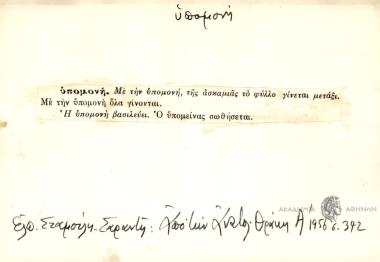 ὑπομονή
ὑπομονή. Μὲ τὴν ὑπομονή, τῆς ἀσκαμιᾶς τὸ φύλλο γίνεται μετάξι.
Μὲ τὴν ὑπομονὴ ὅλα γίνονται.
Ἡ ὑπομονὴ βασιλεύει. Ὁ ὑπομείνας σωθήσεται.
ΑΚΑΔΗΜΙΑ ΑΘΗΝΩΝ
Ἐλπ. Σταμούλη-Σαραντῆ: Ἀπὸ τὴν Ἀνατολ. Θράκη Α΄ 1956 σ. 342